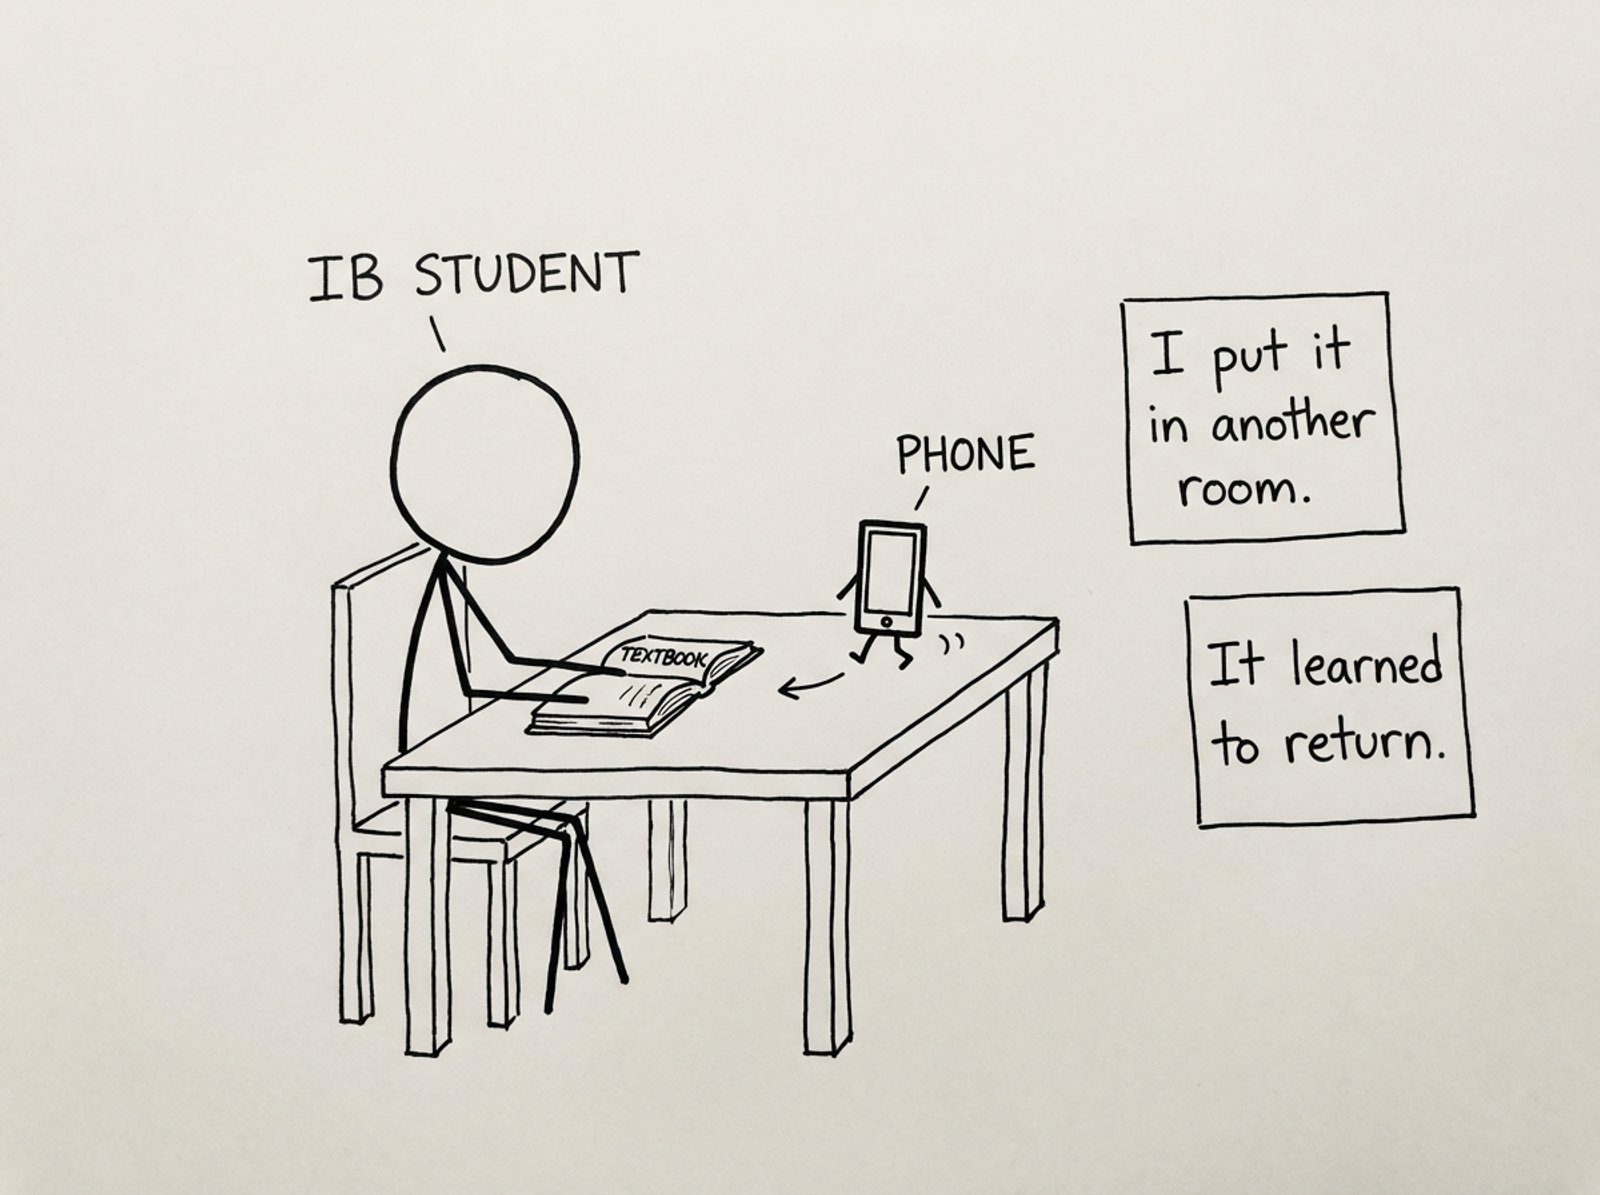 IB STUDENT
PHONE
TEXTBOOK
I put it
in another
room.
It learned
to return.